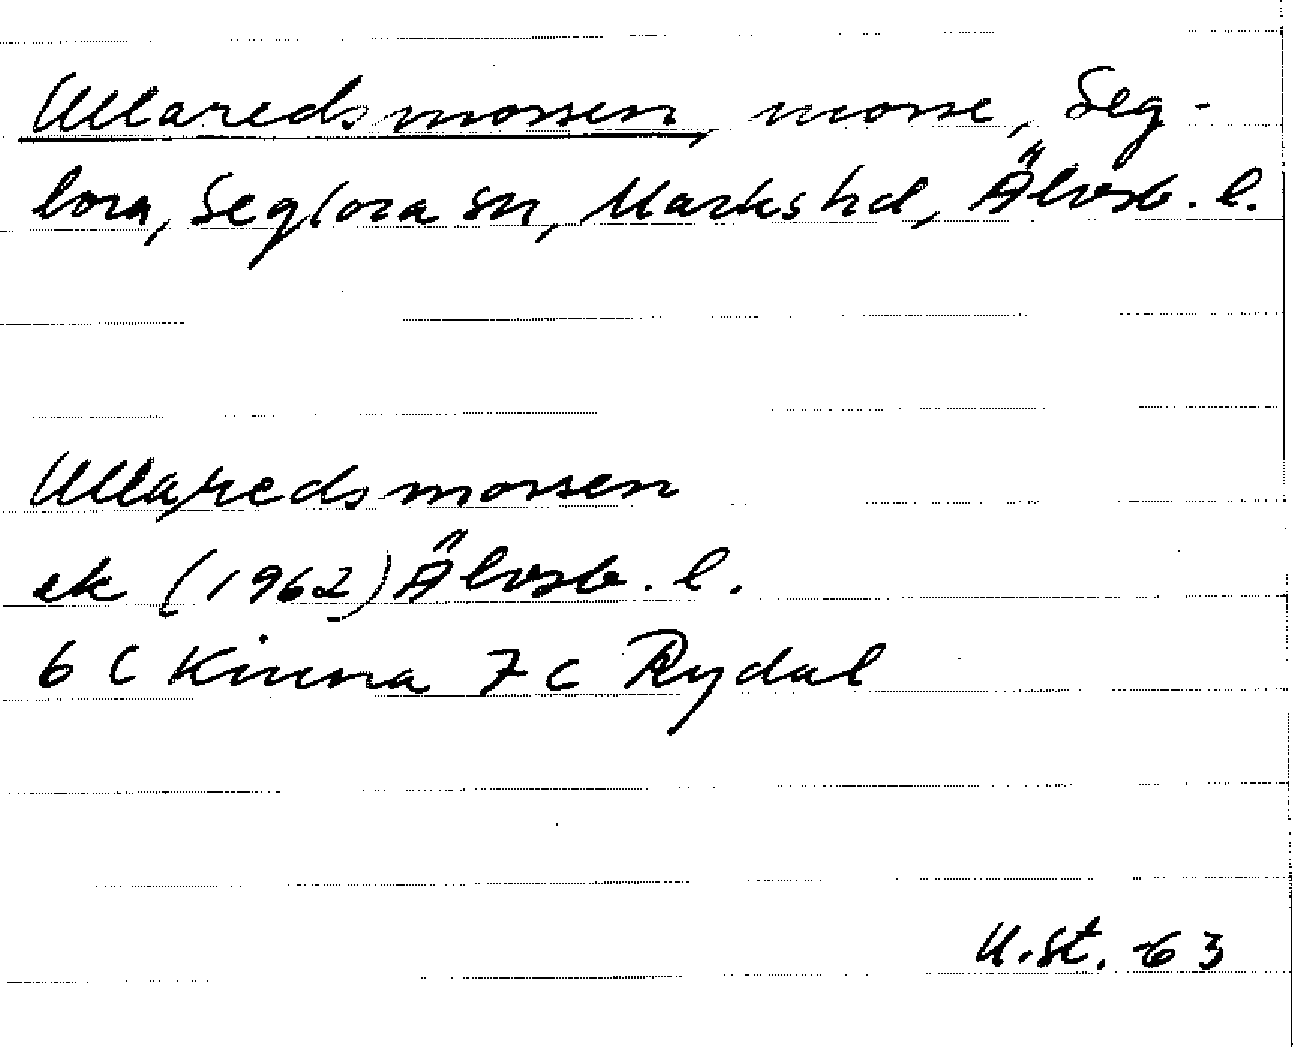 Ullaredsmossen, mosse, Seg-
lora, Seglora sn, Marks hd, Älvsb. l.
Ullaredsmossen
ek (1962) Älvsb. l.
6 C Kinna 7 C Rydal
U. St. -63